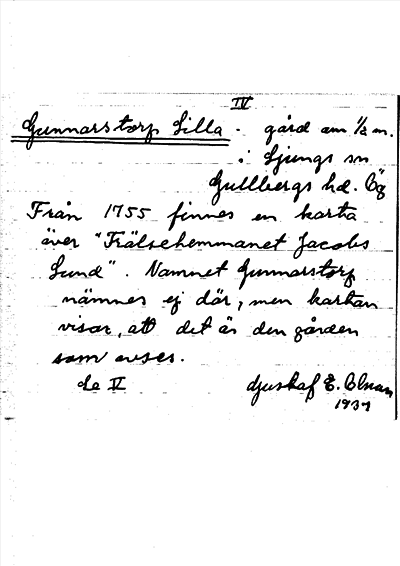 IV
Gunnarstorp Lilla - gård om 1/2 m.
i Ljungs sn
Gullbergs hd. Ög
Från 1755 finnes en karta
över "Frälsehemmanet Jacobs
Lund". Namnet Gunnarstorp
nämnes ej där, men kartan
visar, att det är den gården
som avses.
Se V Gustaf E.
1937